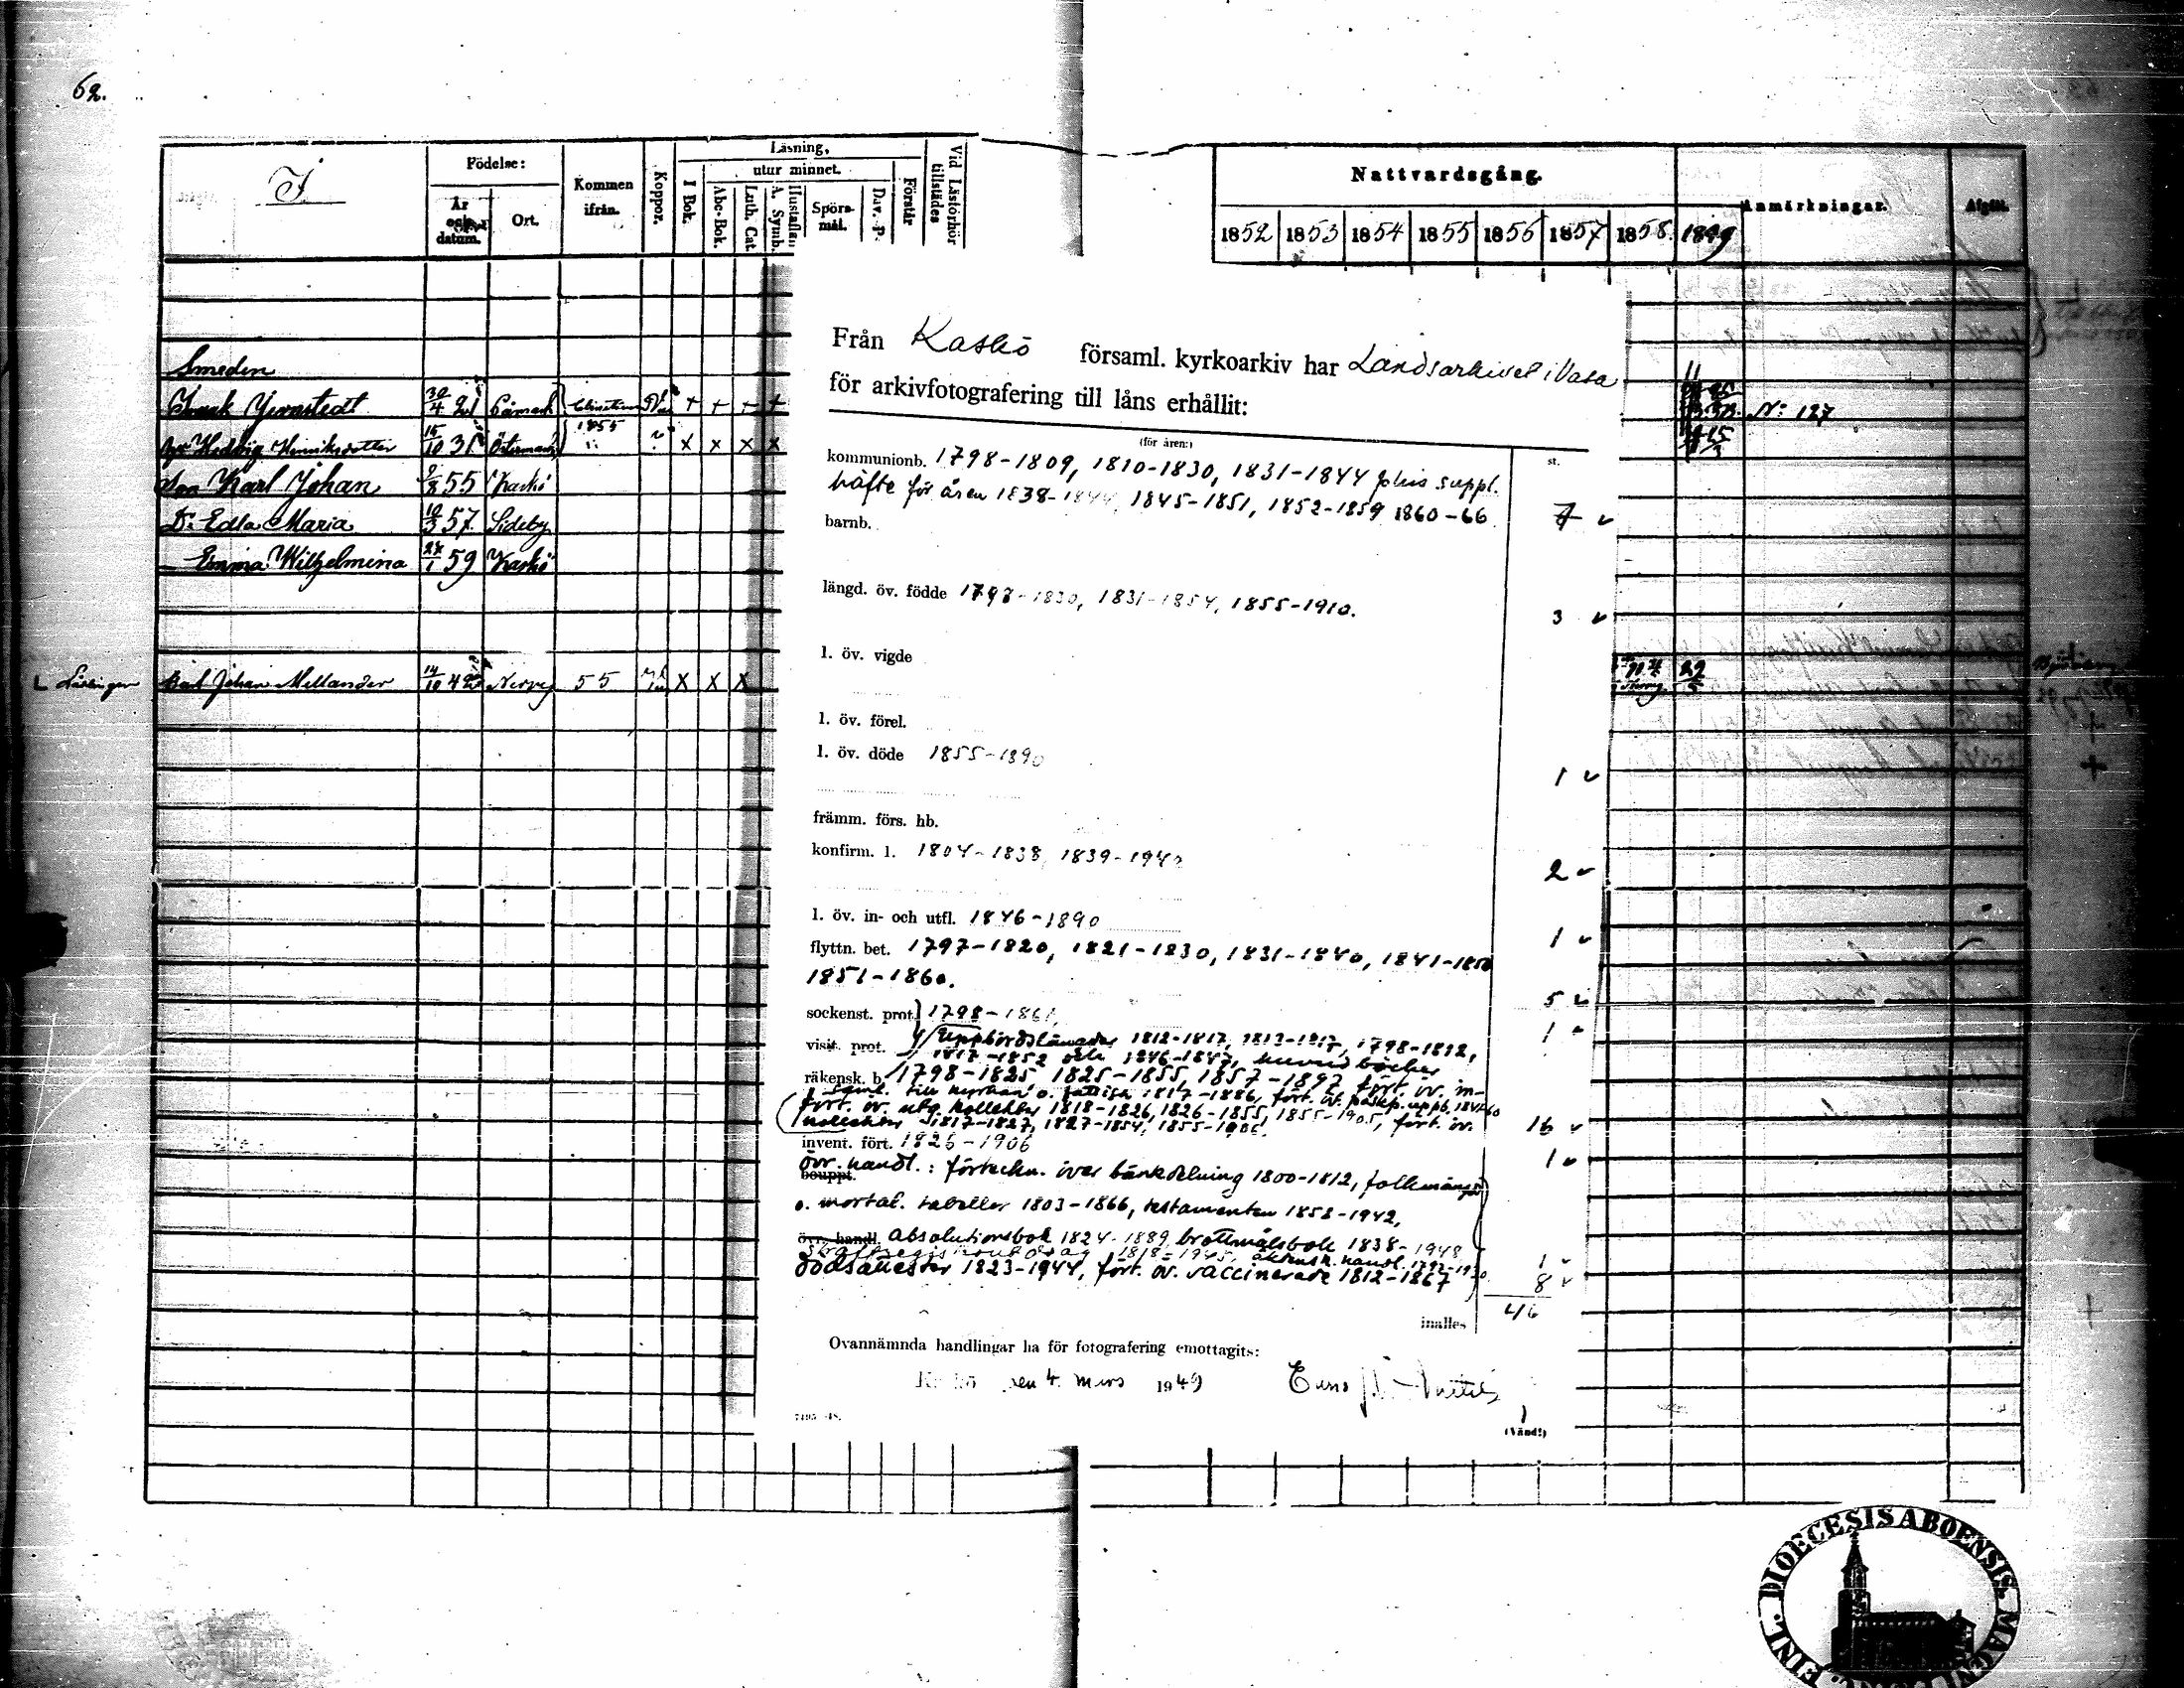 62.
I.
Födelse:
År och datum.
Ort.
Kommen ifrån.
Koppor.
Läsning,
utur minnet.
I Bok.
Abc-Bok.
Luth. Cat.
A. Symb.
Hustaflan
Spörsmål.
Dav. P.
Förstår
Vid Läsförhör tillstädes
Nattvardsgång.
1852 1853 1854 1855 1856 1857 1858. 1859
Anmärkningar.
Afgått.
Smeden
Isaak Jernstedt 30/4 Sämark
N: 127
Hedvig Henriksdotter 15/10 31 Östermark ? x x x x
1855
Son Karl Johan 55 Kaskö
Dr Edla Maria 57 Sideby
— Emma Wilhelmina 27/1 59 Kaskö
Lärlingen Karl Johan Mellander 14/10 42 Nerpes 55 x x x
Från Kaskö församl. kyrkoarkiv har Landsarkivet i Vasa
för arkivfotografering till låns erhållit:
(för åren:)
st.
kommunionb. 1798-1809, 1810-1830, 1831-1844 suppl.
häfte för åren 1838-1844, 1845-1851, 1852-1859 1860-66 7
barnb.
längd. öv. födde 1798-1830, 1831-1854, 1855-1910. 3
l. öv. vigde
l. öv. förel.
l. öv. döde 1855-1890 1
främm. förs. hb.
konfirm. l. 1804-1838, 1839-1942 2
l. öv. in- och utfl. 1846-1890 1
flyttn. bet. 1797-1820, 1821-1830, 1831-1840, 1841-1850
1851-1860. 5
sockenst. prot. 1798-1861 1
visit. prot. Uppbördslängder 1812-1817, 1813-1817, 1798-1812,
1817-1852 och 1846-1847, huvudböcker
räkensk. b. 1798-1825 1825-1855 1857-1897 fört. öv. in-
saml. till kyrkan o. fattiga 1817-1886, fört. öv. påskp. uppb.
fört. öv. utg. kollekter 1818-1826, 1826-1855, 1855-1905, fört. öv.
kollekter 1817-1827, 1827-1854, 1855-1906. 16
invent. fört. 1826-1906 1
övr. handl.: förteckn. över bänkdelning 1800-1812, folkmängds
bouppt.
o. mortal. tabeller 1803-1866, testamenten 1858-1942,
övr. handl. absolutionsbok 1824-1889, brottmålsbok 1838-1948
straffregisterutdrag 1818-1945, äktensk. handl. 1792-1930 1
dödsattester 1823-1944, fört. öv. vaccinerade 1812-1867 8
inalles 46
Ovannämnda handlingar ha för fotografering emottagits:
Kaskö den 4. mars 1949
(Vänd!)
DIOECESIS ABOENSIS